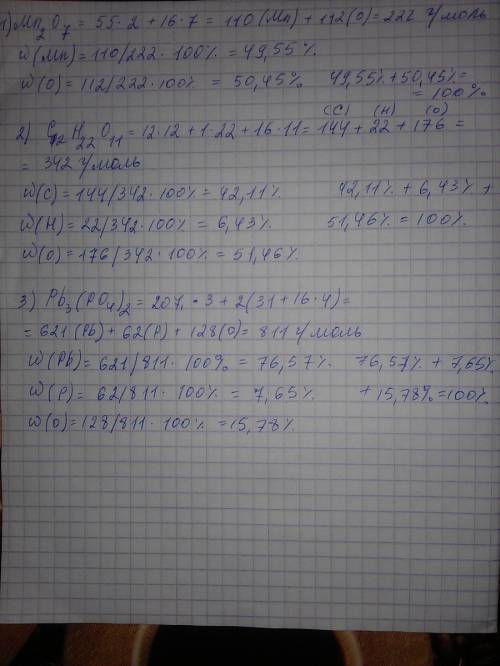 1) Mn₂O₇ = 55·2 + 16·7 = 110 (Mn) + 112 (O) = 222 г/моль
w(Mn) = 110/222 · 100% = 49,55%
w(O) = 112/222 · 100% = 50,45% 49,55% + 50,45% =
= 100%
(C) (H) (O)
2) C₁₂H₂₂O₁₁ = 12·12 + 1·22 + 16·11 = 144 + 22 + 176 =
= 342 г/моль
w(C) = 144/342 · 100% = 42,11% 42,11% + 6,43% +
w(H) = 22/342 · 100% = 6,43% 51,46% = 100%
w(O) = 176/342 · 100% = 51,46%
3) Pb₃(PO₄)₂ = 207 · 3 + 2(31 + 16·4) =
= 621 (Pb) + 62 (P) + 128 (O) = 811 г/моль
w(Pb) = 621/811 · 100% = 76,57% 76,57% + 7,65%
w(P) = 62/811 · 100% = 7,65% + 15,78% = 100%
w(O) = 128/811 · 100% = 15,78%